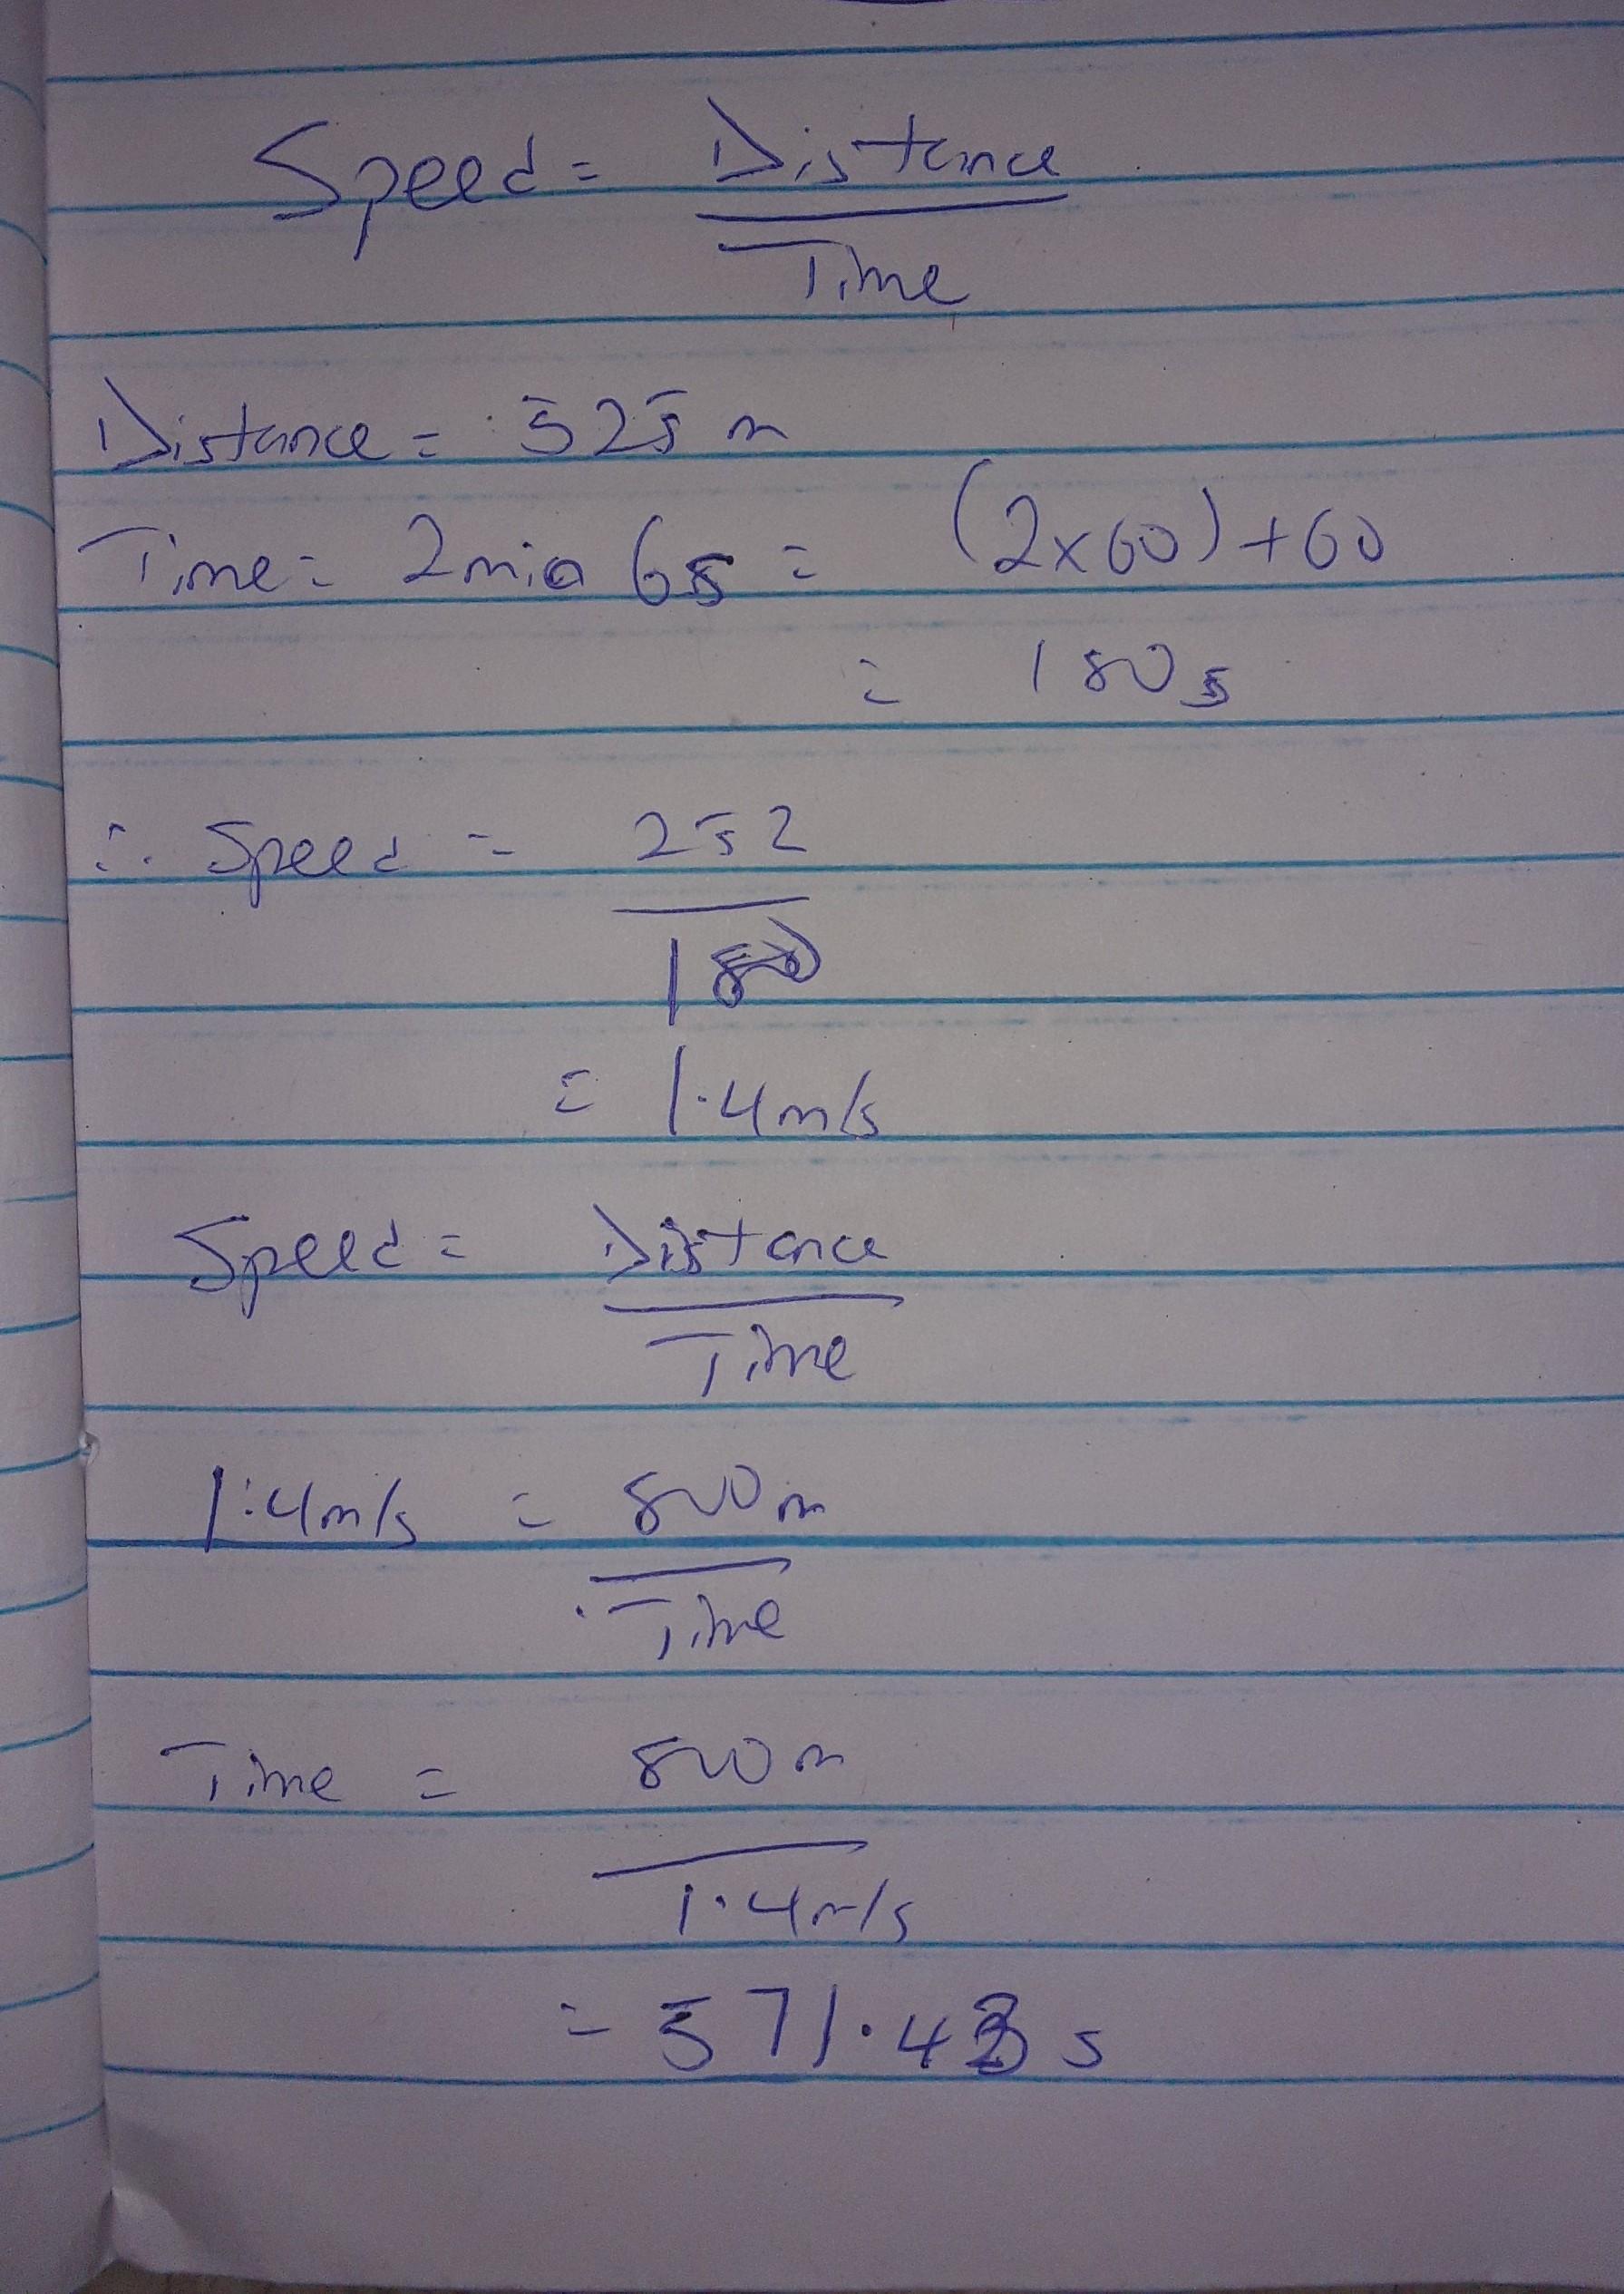 Speed = Distance
Time
Distance = 525 m
Time = 2 min 6s = (2x60)+60
= 180s
∴ Speed = 252
180
= 1.4m/s
Speed = Distance
Time
1.4m/s = 800m
Time
Time = 800m
1.4m/s
= 571.43 s